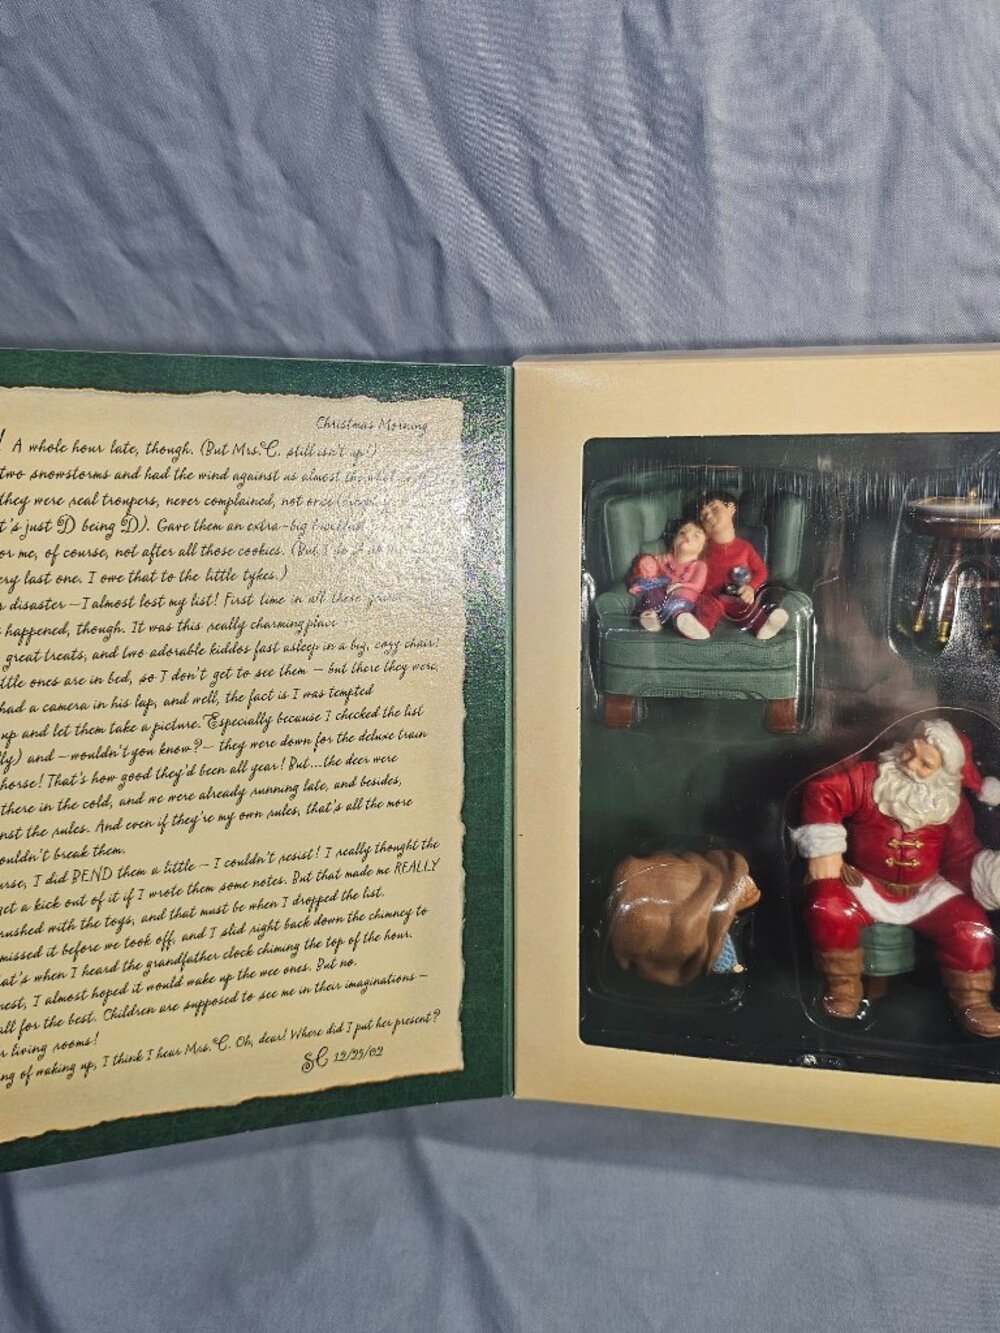 Christmas Morning
! A whole hour late, though. (But Mrs. C. still isn't up!)
two snowstorms and had the wind against us almost the
they were real troupers, never complained, not once
t's just D being D). Gave them an extra-big
or me, of course, not after all those cookies. (But I
ery last one. I owe that to the little tykes.)
r disaster – I almost lost my list! First time in all these
happened, though. It was this really charming place –
great treats, and two adorable kiddos fast asleep in a big, cozy chair!
ttle ones are in bed, so I don't get to see them – but there they were,
had a camera in his lap, and well, the fact is I was tempted
up and let them take a picture. Especially because I checked the list
lly) and – wouldn't you know? – they were down for the deluxe train
horse! That's how good they'd been all year! But...the deer were
there in the cold, and we were already running late, and besides,
nst the rules. And even if they're my own rules, that's all the more
ouldn't break them.
urse, I did BEND them a little – I couldn't resist! I really thought the
get a kick out of it if I wrote them some notes. But that made me REALLY
rushed with the toys, and that must be when I dropped the list.
missed it before we took off, and I slid right back down the chimney to
hat's when I heard the grandfather clock chiming the top of the hour.
nest, I almost hoped it would wake up the wee ones. But no.
all for the best. Children are supposed to see me in their imaginations –
r living rooms!
ng of waking up, I think I hear Mrs. C. Oh, dear! Where did I put her present?
SC 12/25/02